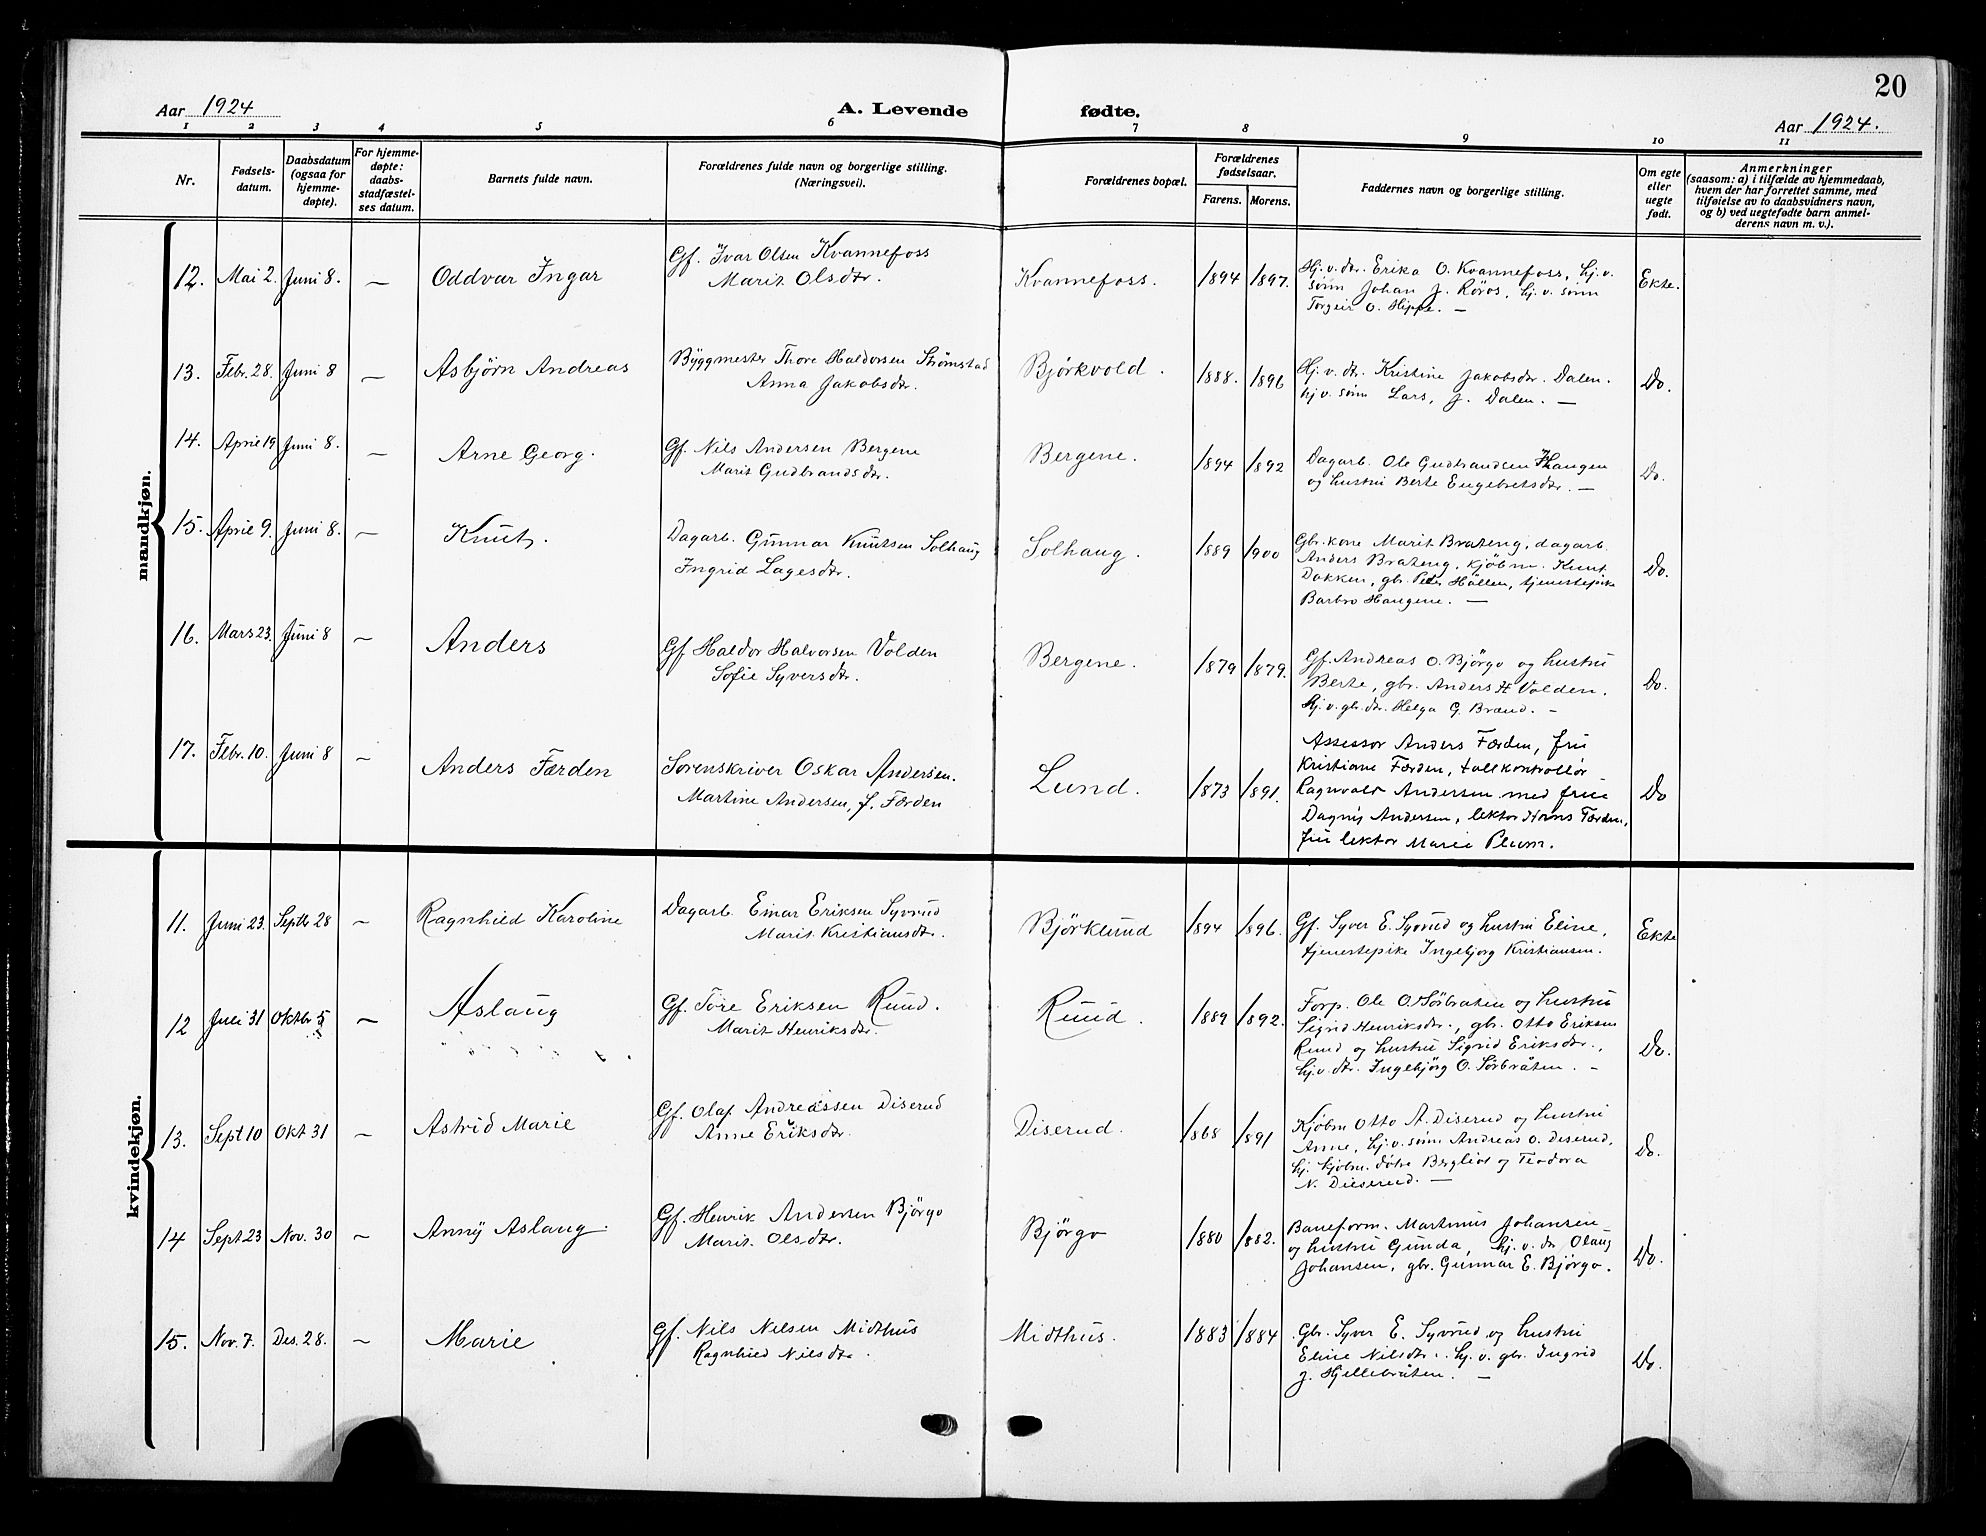 20
Aar 1924
A. Levende fødte.
Aar 1924.
1 2 3 4 5 6 7 8 9 10 11
Nr.
Fødsels-
datum.
Daabsdatum
(ogsaa for
hjemme-
døpte).
For hjemme-
døpte:
daabs-
stadfæstel-
ses datum.
Barnets fulde navn.
Forældrenes fulde navn og borgerlige stilling.
(Næringsvei).
Forældrenes bopæl.
Forældrenes
fødselsaar.
Farens. Morens.
Faddernes navn og borgerlige stilling.
Om egte
eller
uegte
født.
Anmerkninger
(saasom: a) i tilfælde av hjemmedaab,
hvem der har forrettet samme, med
tilføielse av to daabsvidners navn,
og b) ved uegtefødte barn anmel-
derens navn m. v.).
mandkjøn.
12. Mai 2. Juni 8. — Oddvar Ingar
Gf. Ivar Olsen Kvannefoss
Marit Olsdtr.
Kvannefoss. 1894 1897.
Hj.v.dtr. Erika O. Kvannefoss, hj.v.
sønn Johan J. Røros, hj.v. sønn
Torgeir O. Hippe. —
Ekte.
13. Febr. 28. Juni 8 — Asbjørn Andreas
Byggmester Thore Haldorsen Strømstad
Anna Jakobsdtr.
Bjørkvold. 1888. 1896
Hj.v.dtr. Kristine Jakobsdtr. Dalen.
hj.v. sønn Lars, J. Dalen. —
Do.
14. April 19 Juni 8. — Arne Georg.
Gf. Nils Andersen Bergene
Marit Gudbrandsdtr.
Bergene. 1894 1892
Dagarb. Ole Gudbrandsen Haugen
og hustru Berte Engebretsdtr. —
Do.
15. April 9. Juni 8. — Knut.
Dagarb. Gunnar Knutsen Solhaug
Ingrid Lagesdtr.
Solhaug. 1889 1900
Gbr.kone Marit Bråteng, dagarb.
Anders Bråteng, kjøbm. Knut
Dokken, gbr. Peder Hallen, tjenestepike
Barbro Haugene. —
Do.
16. Mars 23. Juni 8 — Anders
Gf Haldor Halvorsen Volden
Sofie Syversdtr.
Bergene. 1879 1879.
Gf. Andreas O. Bjørgo og hustru
Berte, gbr. Anders H Volden.
Hj.v.gbr.dtr. Helga G. Brænd. —
Do.
17. Febr. 10. Juni 8 — Anders Færden
Sorenskriver Oskar Andersen.
Martine Andersen, f. Færden
Lund. 1873 1891.
Assessor Anders Færden, fru
Kristiane Færden, tollkontrollør
Ragnvald Andersen med frue
Dagny Andersen, lektor Hans Færden,
fru lektor Marie Plum.
Do
kvindekjøn.
11. Juni 23. Septbr 28 — Ragnhild Karoline
Dagarb. Einar Eriksen Syvrud
Marit Kristiansdtr.
Bjørklund 1894 1896.
Gf. Syver E. Syvrud og hustru Eline,
tjenestepike Ingebjørg Kristiansen.
Ekte
12 Juli 31 Oktbr 5 — Aslaug
Gf. Tore Eriksen Ruud.
Marit Henriksdtr.
Ruud. 1889 1892.
Forp. Ole O. Sørbråten og hustru
Sigrid Henriksdtr., gbr. Otto Eriksen
Ruud og hustru Sigrid Eriksdtr.,
hj.v.dtr. Ingebjørg O. Sørbråten. —
Do.
13. Sept 10 Okt 31 — Astrid Marie
Gf. Olaf Andreassen Diserud
Anne Eriksdtr.
Diserud. 1868 1891
Kjøbm Otto A. Diserud og hustru
Anne, hj.v. sønn Andreas O. Diserud,
hj. kjøbm. døtre Bergliot og Teodora
N. Dieserud. —
Do.
14 Sept 23 Nov. 30 — Anny Aslaug.
Gf. Henrik Andersen Bjørgo
Marit Olsdtr.
Bjørgo 1880 1882.
Baneform. Martinus Johansen
og hustru Gunda, hj.v.dtr Olaug
Johansen, gbr. Gunnar E. Bjørgo.
Do.
15. Nov. 7. Des. 28. — Marie
Gf. Nils Nilsen Midthus
Ragnhild Nilsdtr.
Midthus. 1883 1884
Gbr. Syver E. Syvrud og hustru
Eline Nilsdtr. hj.v. gbr. Ingrid
J. Hjellebråten. —
Do.